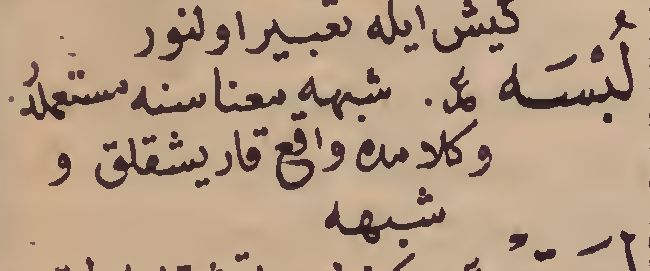 كیش ایله تعبیر اولنور
لُبْسَه شبهه معناسنه مستعملدر
وكلامده واقع قاریشقلق و
شبهه